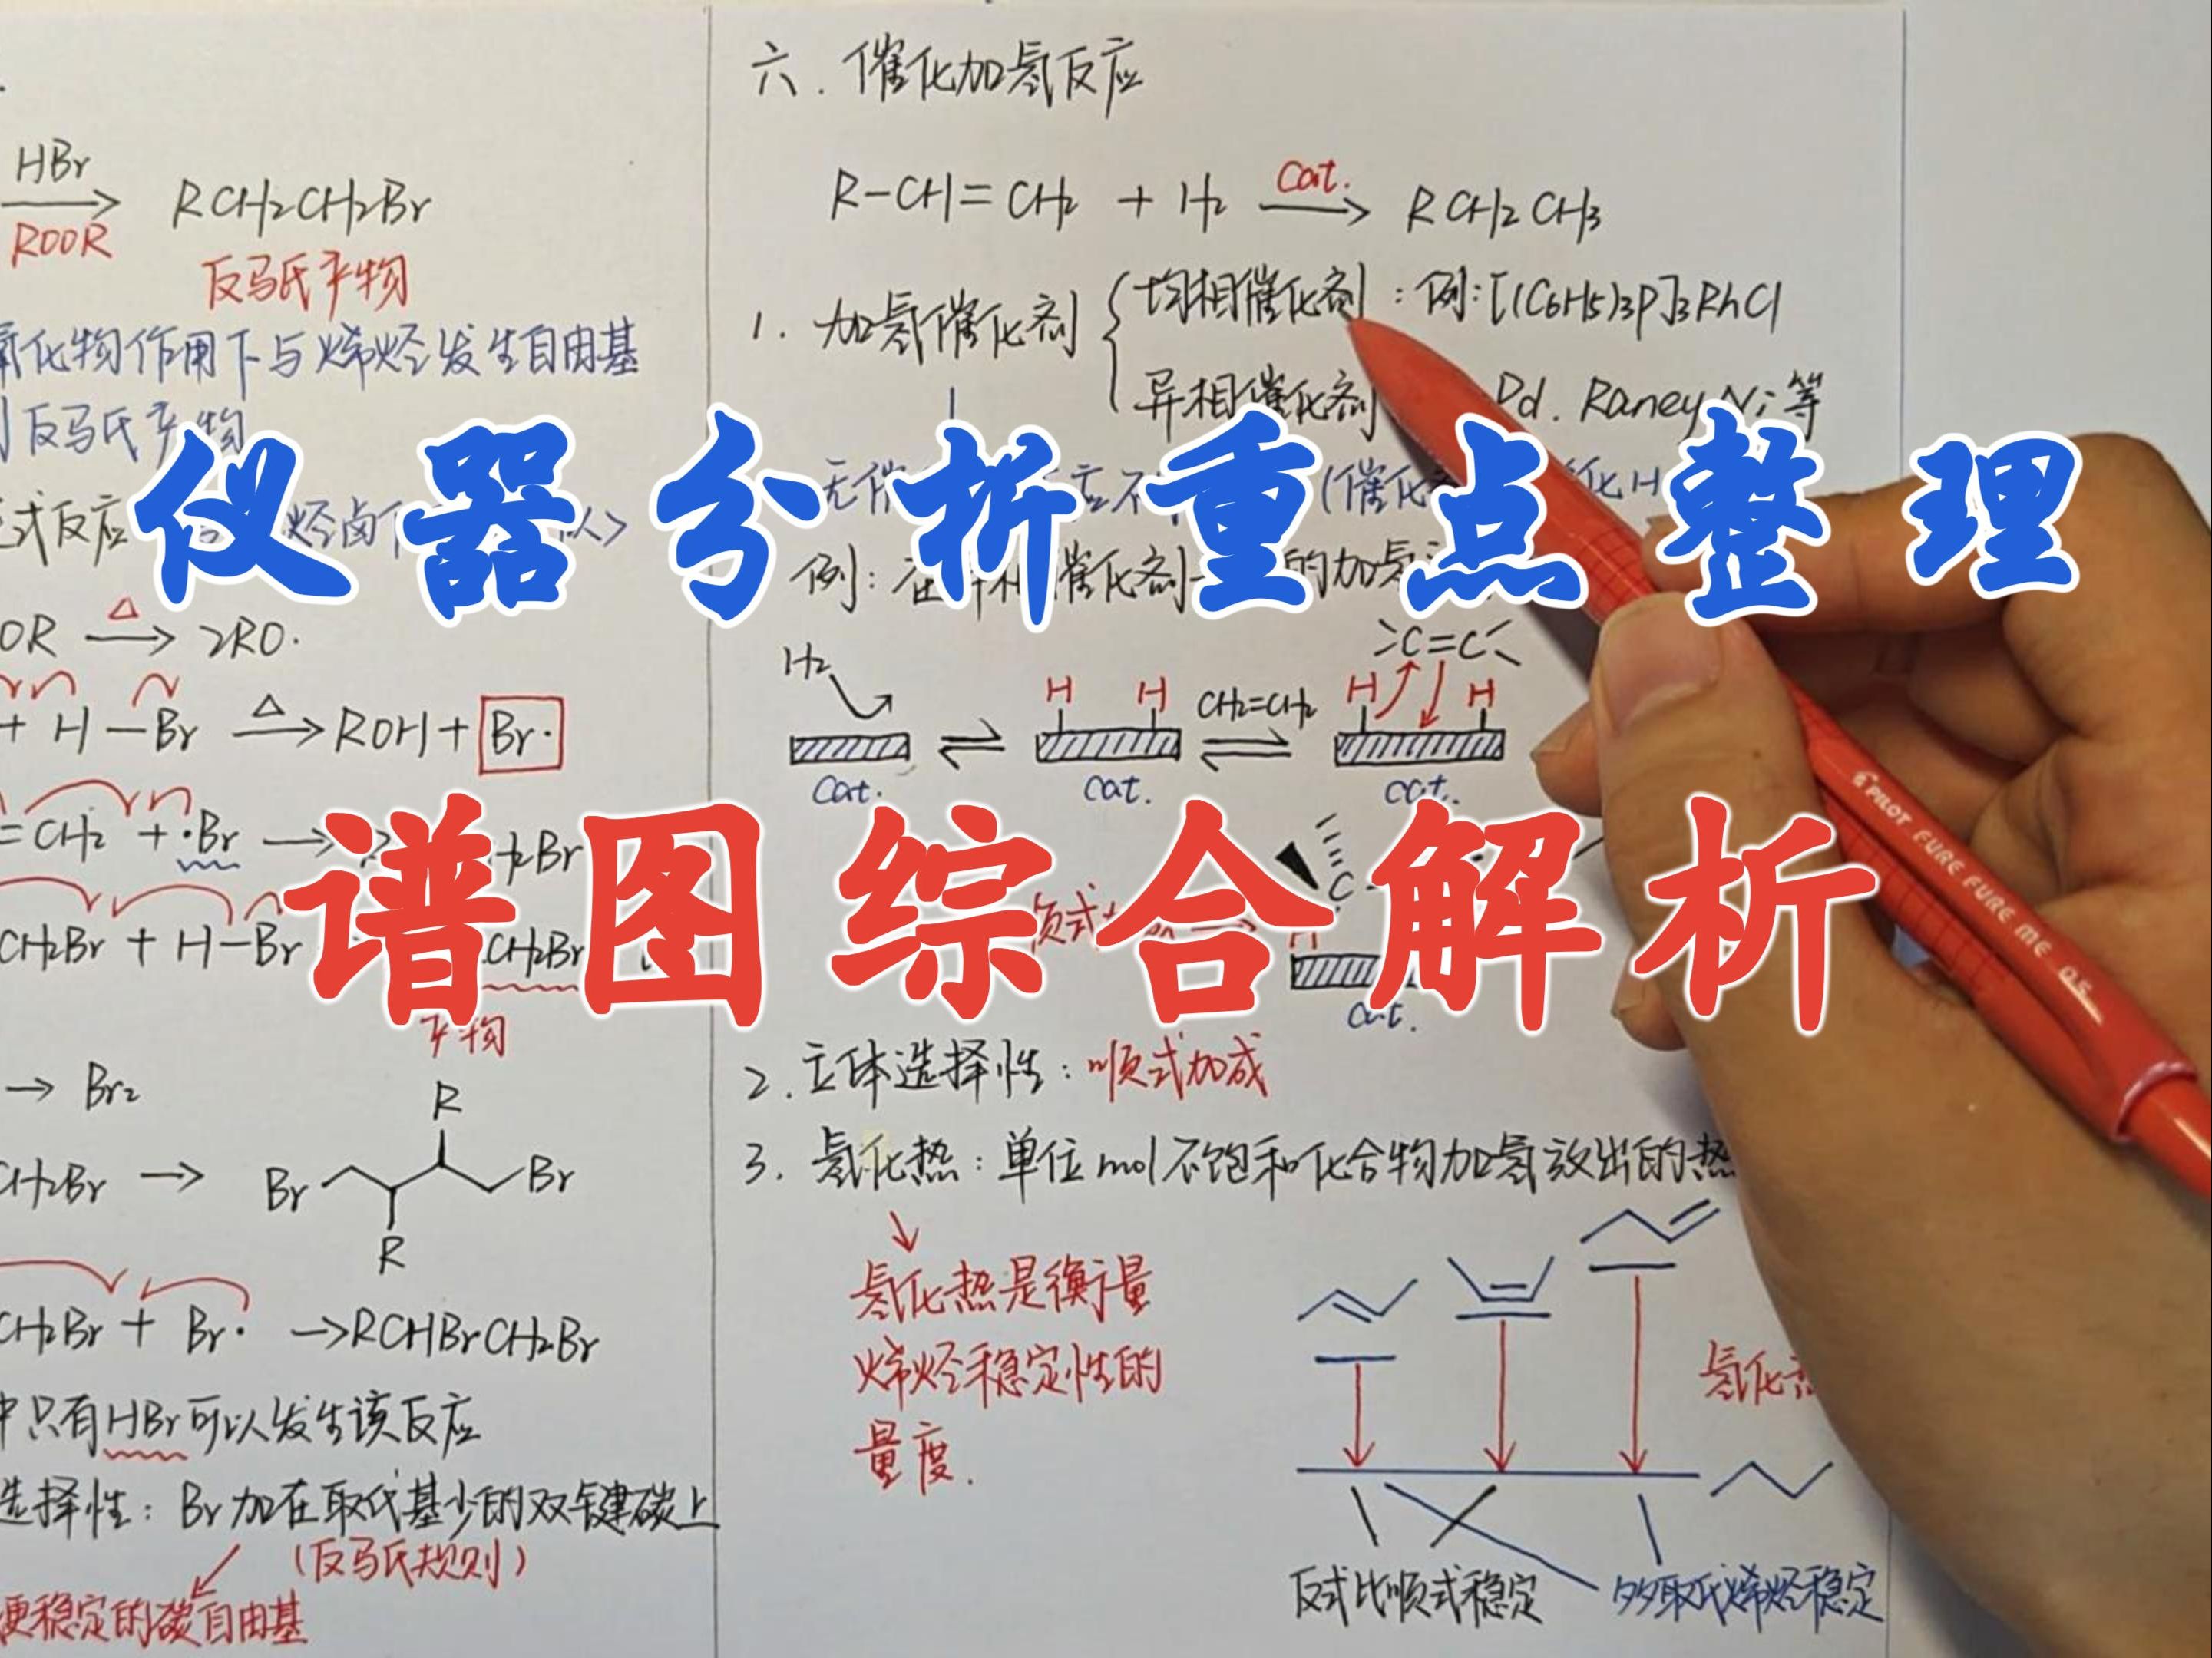 仪器分析重点整理
谱图综合解析
HBr
ROOR
RCH₂CH₂Br
反马氏产物
氧化物作用下与烯烃发生自由基
反马氏产物
式反应
OR →(△) 2RO·
+ H—Br →(△) ROH + Br·
=CH₂ + ·Br →
CH₂Br + H—Br
CH₂Br
产物
→ Br₂
CH₂Br →
R
Br
Br
R
CH₂Br + Br· → RCHBrCH₂Br
中只有HBr可以发生该反应
选择性：Br加在取代基少的双键碳上
(反马氏规则)
更稳定的碳自由基
六．催化加氢反应
Cat.
R—CH=CH₂ + H₂ → RCH₂CH₃
1. 加氢催化剂
均相催化剂：例：[(C6H5)3P]3RhCl
异相催化剂
Pd. Raney Ni等
H₂
H H
CH₂=CH₂
H H
C=C
Cat.
Cat.
Cat.
C
H
Cat.
2. 立体选择性：顺式加成
3. 氢化热：单位mol不饱和化合物加氢放出的热
氢化热是衡量
烯烃稳定性的
量度.
氢化热
反式比顺式稳定
多取代烯烃稳定
PILOT FURE FURE ME 0.5